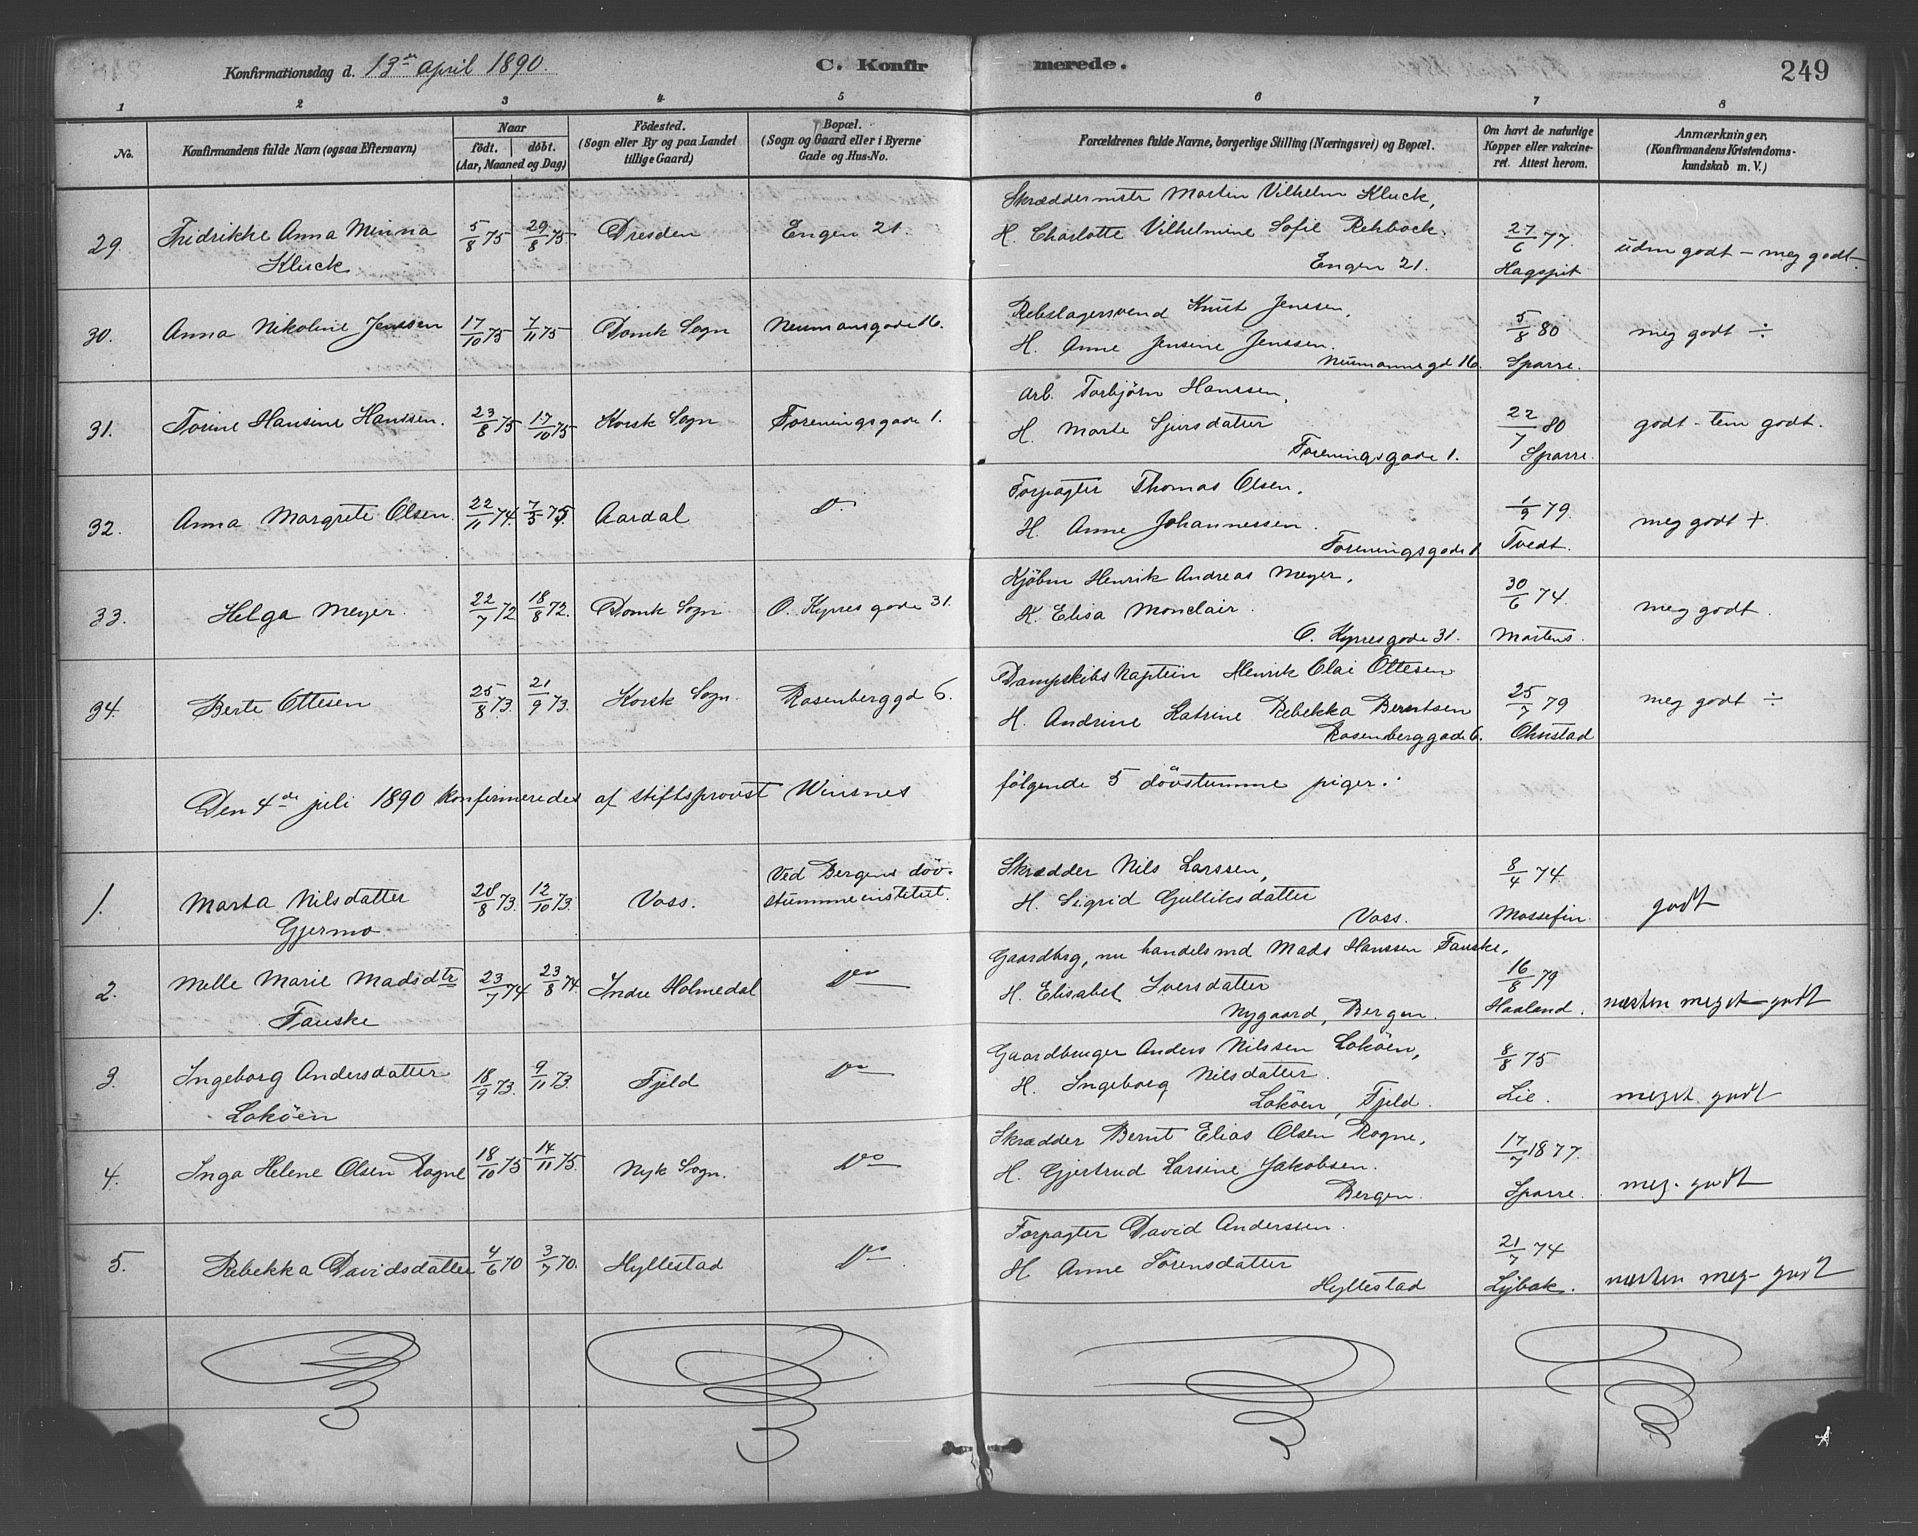 Konfirmationsdag d. 13de april 1890. C. Konfirmerede. 249
1 2 3 4 5 6 7 8
No. Konfirmandens fulde Navn (ogsaa Efternavn) Naar födt. döbt. (Aar, Maaned og Dag) Födested. (Sogn eller By og paa Landet tillige Gaard) Bopæl. (Sogn og Gaard eller i Byerne Gade og Hus-No. Forældrenes fulde Navne, borgerlige Stilling (Næringsvei) og Bopæl. Om havt de naturlige Kopper eller vakcineret. Attest herom. Anmærkninger. (Konfirmandens Kristendomskundskab m. V.)
29. Fridrikke Anna Minna Kluck 5/8 75 29/8 75 Dresden Engen 21.
Skræddermstr Martin Vilhelm Kluck,
H. Charlotte Vilhelmine Sofie Rehbock.
Engen 21.
27/6 77. Hagspit udm godt – meg godt.
30. Anna Nikoline Jenssen 17/10 75 7/11 75 Domk Sogn Neumansgade 16.
Rebslagersvend Knut Jenssen,
H. Anne Jensine Jenssen.
Neumannsgd 16.
5/8 80 Sparre. meg godt ÷
31. Torine Hansine Hanssen. 23/8 75 17/10 75 Korsk Sogn Foreningsgade 1.
Arb. Torbjørn Hanssen,
H. Marte Sjursdatter
Foreningsgade 1.
22/7 80 Sparre. godt – tem godt.
32. Anna Margrete Olsen. 22/11 74. 7/3 75 Aardal Do
Forpagter Thomas Olsen,
H. Anne Johannessen.
Foreningsgade 1
1/9 79. Tvedt. meg godt +
33. Helga Meyer. 22/7 72 18/8 72. Domk Sogn. O. Kyrresgade 31.
Kjøbm Henrik Andreas Meyer,
H. Elisa Monclair.
O. Kyrresgade 31.
30/6 74. Martens. meg godt.
34. Berte Ottesen 25/8 73. 21/9 73. Korsk Sogn. Rosenberggd 6.
Dampskibskaptein Henrik Olai Ottesen
H. Andrine Katrine Rebekka Berntsen
Rosenberggade 6.
25/7 79 Ohnstad meg godt ÷
Den 4de juli 1890 konfirmeredes af stiftsprovst Winsnes følgende 5 døvstumme piger:
1. Marta Nilsdatter Gjermo 28/8 73. 12/10 73. Voss. Ved Bergens døvstummeinstitut.
Skrædder Nils Larssen,
H. Sigrid Gulliksdatter
Voss.
8/4 74 Mossefin. godt
2. Mille Marie Madsdtr Fauske 23/7 74 23/8 74. Indre Holmedal Do
Gaardbrg, nu handelsmd Mads Hanssen Fauske,
H. Elisabet Iversdatter
Nygaard, Bergen.
16/8 79 Haaland. næsten meget godt
3. Ingeborg Andersdatter Lokøen 18/9 73. 9/11 73. Fjeld Do
Gaardbruger Anders Nilssen Lokøen,
H. Ingeborg Nilsdatter.
Lokøen, Fjeld.
8/8 75 Lie. meget godt
4. Inga Helene Olsen Rogne 18/10 75 14/11 75. Nyk Sogn. Do
Skrædder Bernt Elias Olsen Rogne,
H. Gjertrud Larsine Jakobsen.
Bergen.
17/7 1877. Sparre. meg. godt
5. Rebekka Davidsdatter 4/6 70 3/7 70. Hyllestad Do
Forpagter David Anderssen.
H Anne Sørensdatter
Hyllestad
21/7 74 Lybak. næsten meg. godt